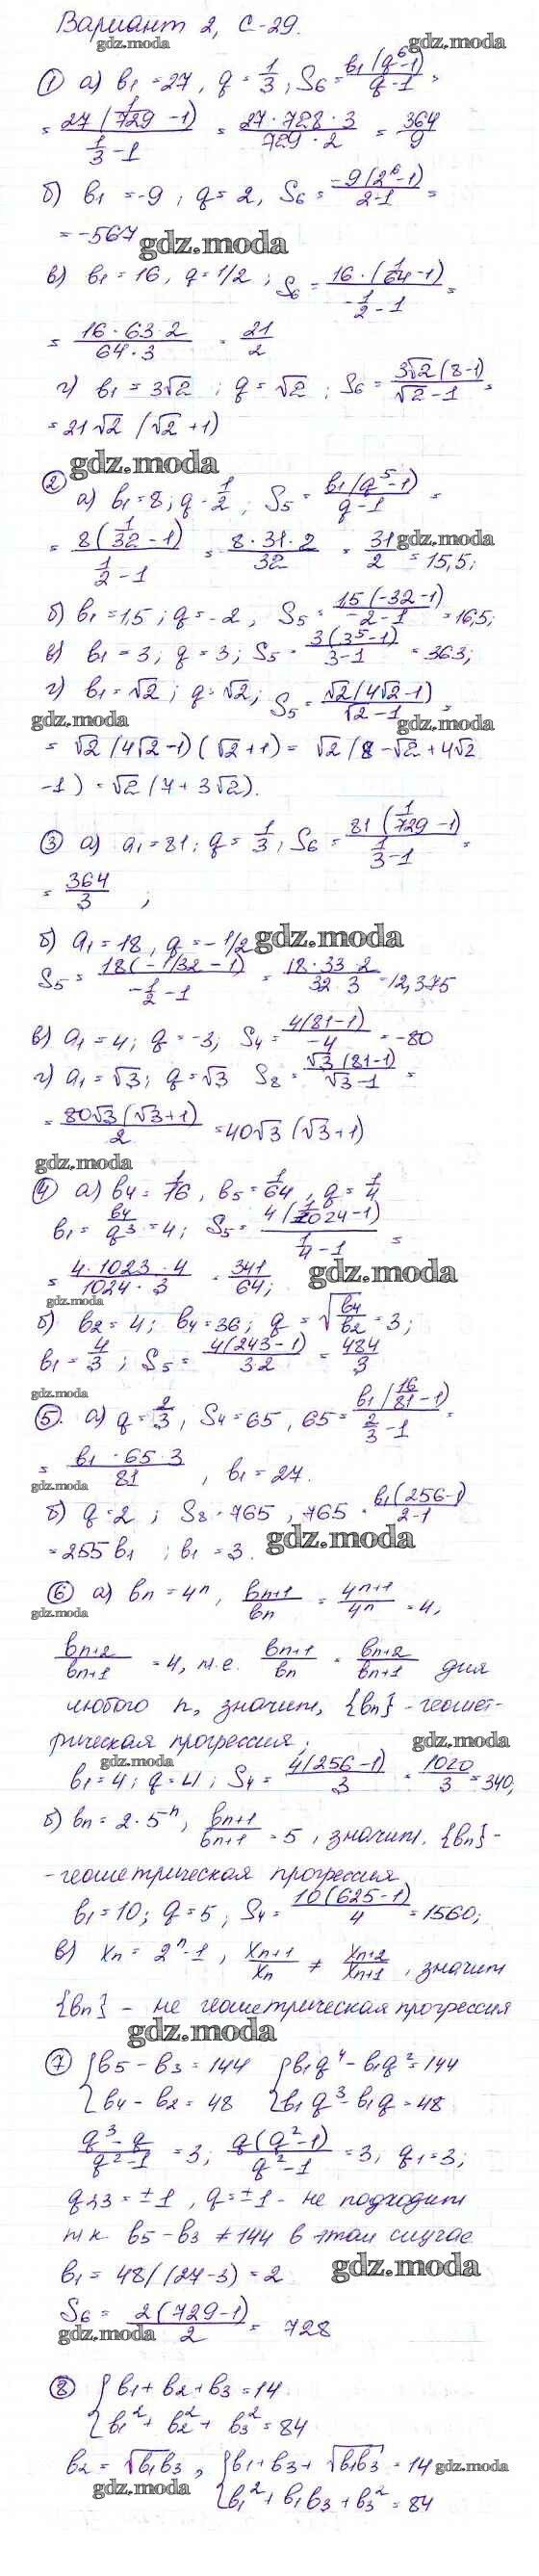 Вариант 2, С-29.
gdz.moda
gdz.moda
① а) b₁ = 27, q = 1/3; S₆ = b₁(q⁶-1)/(q-1) =
= 27(1/729 - 1)/(1/3 - 1) = 27·728·3/(729·2) = 364/9
б) b₁ = -9; q = 2, S₆ = -9(2⁶-1)/(2-1) =
= -567
gdz.moda
в) b₁ = 16, q = 1/2; S₆ = 16·(1/64 - 1)/(-1/2 - 1) =
= 16·63·2/(64·3) = 21/2
г) b₁ = 3√2; q = √2; S₆ = 3√2(8-1)/(√2-1) =
= 21√2 (√2+1)
gdz.moda
② а) b₁ = 8; q = 1/2; S₅ = b₁(q⁵-1)/(q-1) =
= 8(1/32 - 1)/(1/2 - 1) = 8·31·2/32 = 31/2 = 15,5;
gdz.moda
б) b₁ = 1,5; q = -2, S₅ = 15(-32-1)/(-2-1) = 16,5;
в) b₁ = 3; q = 3; S₅ = 3(3⁵-1)/(3-1) = 363;
г) b₁ = √2; q = √2; S₅ = √2(4√2-1)/(√2-1) =
gdz.moda
gdz.moda
= √2(4√2-1)(√2+1) = √2(8-√2+4√2
-1) = √2(7+3√2).
③ а) a₁ = 81; q = 1/3; S₆ = 81(1/729 - 1)/(1/3 - 1) =
= 364/3;
б) a₁ = 18, q = -1/2
gdz.moda
S₅ = 18(-1/32 - 1)/(-1/2 - 1) = 18·33·2/(32·3) = 12,375
в) a₁ = 4; q = -3; S₄ = 4(81-1)/(-4) = -80
г) a₁ = √3; q = √3 S₈ = √3(81-1)/(√3-1) =
= 80√3(√3+1)/2 = 40√3(√3+1)
gdz.moda
④ а) b₄ = 1/16, b₅ = 1/64, q = 1/4
b₁ = b₄/q³ = 4; S₅ = 4(1/1024-1)/(1/4 - 1) =
= 4·1023·4/(1024·3) = 341/64;
gdz.moda
gdz.moda
б) b₂ = 4; b₄ = 36; q = √(b₄/b₂) = 3;
b₁ = 4/3; S₅ = 4(243-1)/(3·2) = 484/3
gdz.moda
⑤. а) q = 2/3, S₄ = 65, 65 = b₁(16/81 - 1)/(2/3 - 1) =
= b₁·65·3/81, b₁ = 27.
gdz.moda
б) q = 2; S₈ = 765, 765 = b₁(256-1)/(2-1)
= 255b₁; b₁ = 3.
gdz.moda
⑥ а) bn = 4ⁿ, bn+1/bn = 4ⁿ⁺¹/4ⁿ = 4,
gdz.moda
bn+2/bn+1 = 4, т.е. bn+1/bn = bn+2/bn+1 для
любого n, значит, {bn} - геомет-
рическая прогрессия;
gdz.moda
gdz.moda
b₁ = 4; q = 4; S₄ = 4(256-1)/3 = 1020/3 = 340;
б) bn = 2·5ⁿ, bn+1/bn+1 = 5, значит, {bn}-
-геометрическая прогрессия
b₁ = 10; q = 5; S₄ = 10(625-1)/4 = 1560;
в) xn = 2ⁿ-1, xn+1/xn ≠ xn+2/xn+1, значит
{bn} - не геометрическая прогрессия
gdz.moda
⑦ {b₅-b₃ = 144 {b₁q⁴-b₁q² = 144
{b₄-b₂ = 48 {b₁q³-b₁q = 48
(q³-q)/(q²-1) = 3; q(q²-1)/(q²-1) = 3; q₁ = 3;
q₂,₃ = ±1, q = ±1 - не подходит
т.к b₅-b₃ ≠ 144 в этом случае
b₁ = 48/(27-3) = 2
gdz.moda
S₆ = 2(729-1)/2 = 728
gdz.moda
⑧ {b₁+b₂+b₃ = 14
{b₁²+b₂²+b₃² = 84
b₂ = √(b₁b₃), {b₁+b₃+√(b₁b₃) = 14
gdz.moda
gdz.moda
{b₁²+b₁b₃+b₃² = 84